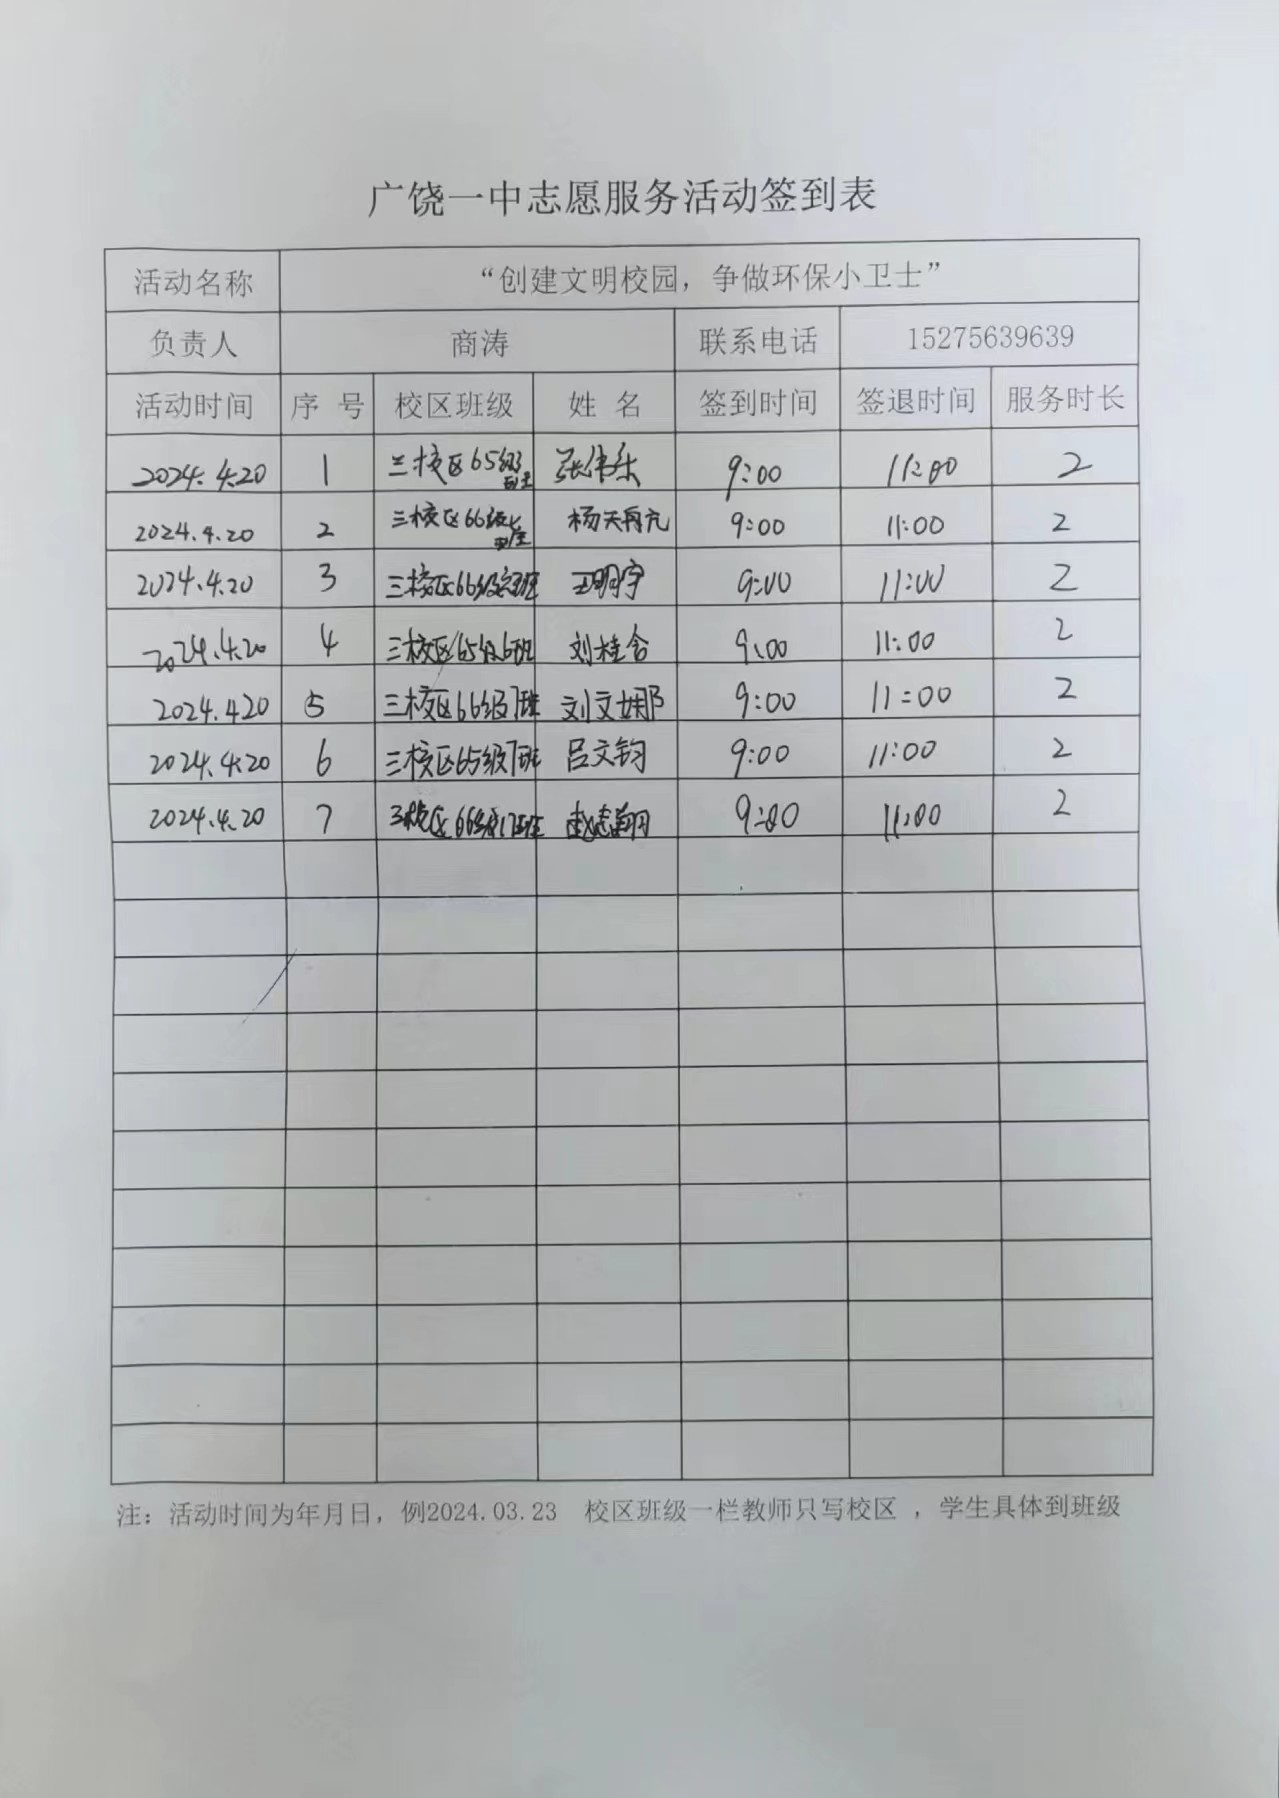 广饶一中志愿服务活动签到表
活动名称 “创建文明校园，争做环保小卫士”
负责人 商涛 联系电话 15275639639
活动时间 序号 校区班级 姓名 签到时间 签退时间 服务时长
2024.4.20 1 三校区65级 张伟乐 9:00 11:00 2
2024.4.20 2 三校区66级 杨天 9:00 11:00 2
2024.4.20 3 三校区66级 王明宇 9:00 11:00 2
2024.4.20 4 三校区65级6班 刘桂含 9:00 11:00 2
2024.4.20 5 三校区66级7班 刘文娜 9:00 11:00 2
2024.4.20 6 三校区65级7班 吕文钧 9:00 11:00 2
2024.4.20 7 三校区66级17班 赵志翔 9:00 11:00 2
注：活动时间为年月日，例2024.03.23 校区班级一栏教师只写校区，学生具体到班级